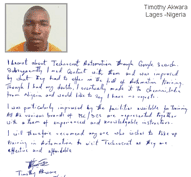 Timothy Akwara
Lages -Nigeria
I learnt about Technocrat Automation through Google Search.
Subsequently I made contact with them and was impressed
by what they had to offer in the field of Automation training.
Though I had my doubts, I eventually made it to
from Nigeria and would like to say I have no regrets.
I was particularly impressed by the facilities available for training
All the various brands of PLC/DCS are represented together
with a team of experienced and knowledgeable instructors.
I will therefore recommend any one who wishes to take up
training in Automation to visit Technocrat as they are
effective and affordable
Timothy Akwara